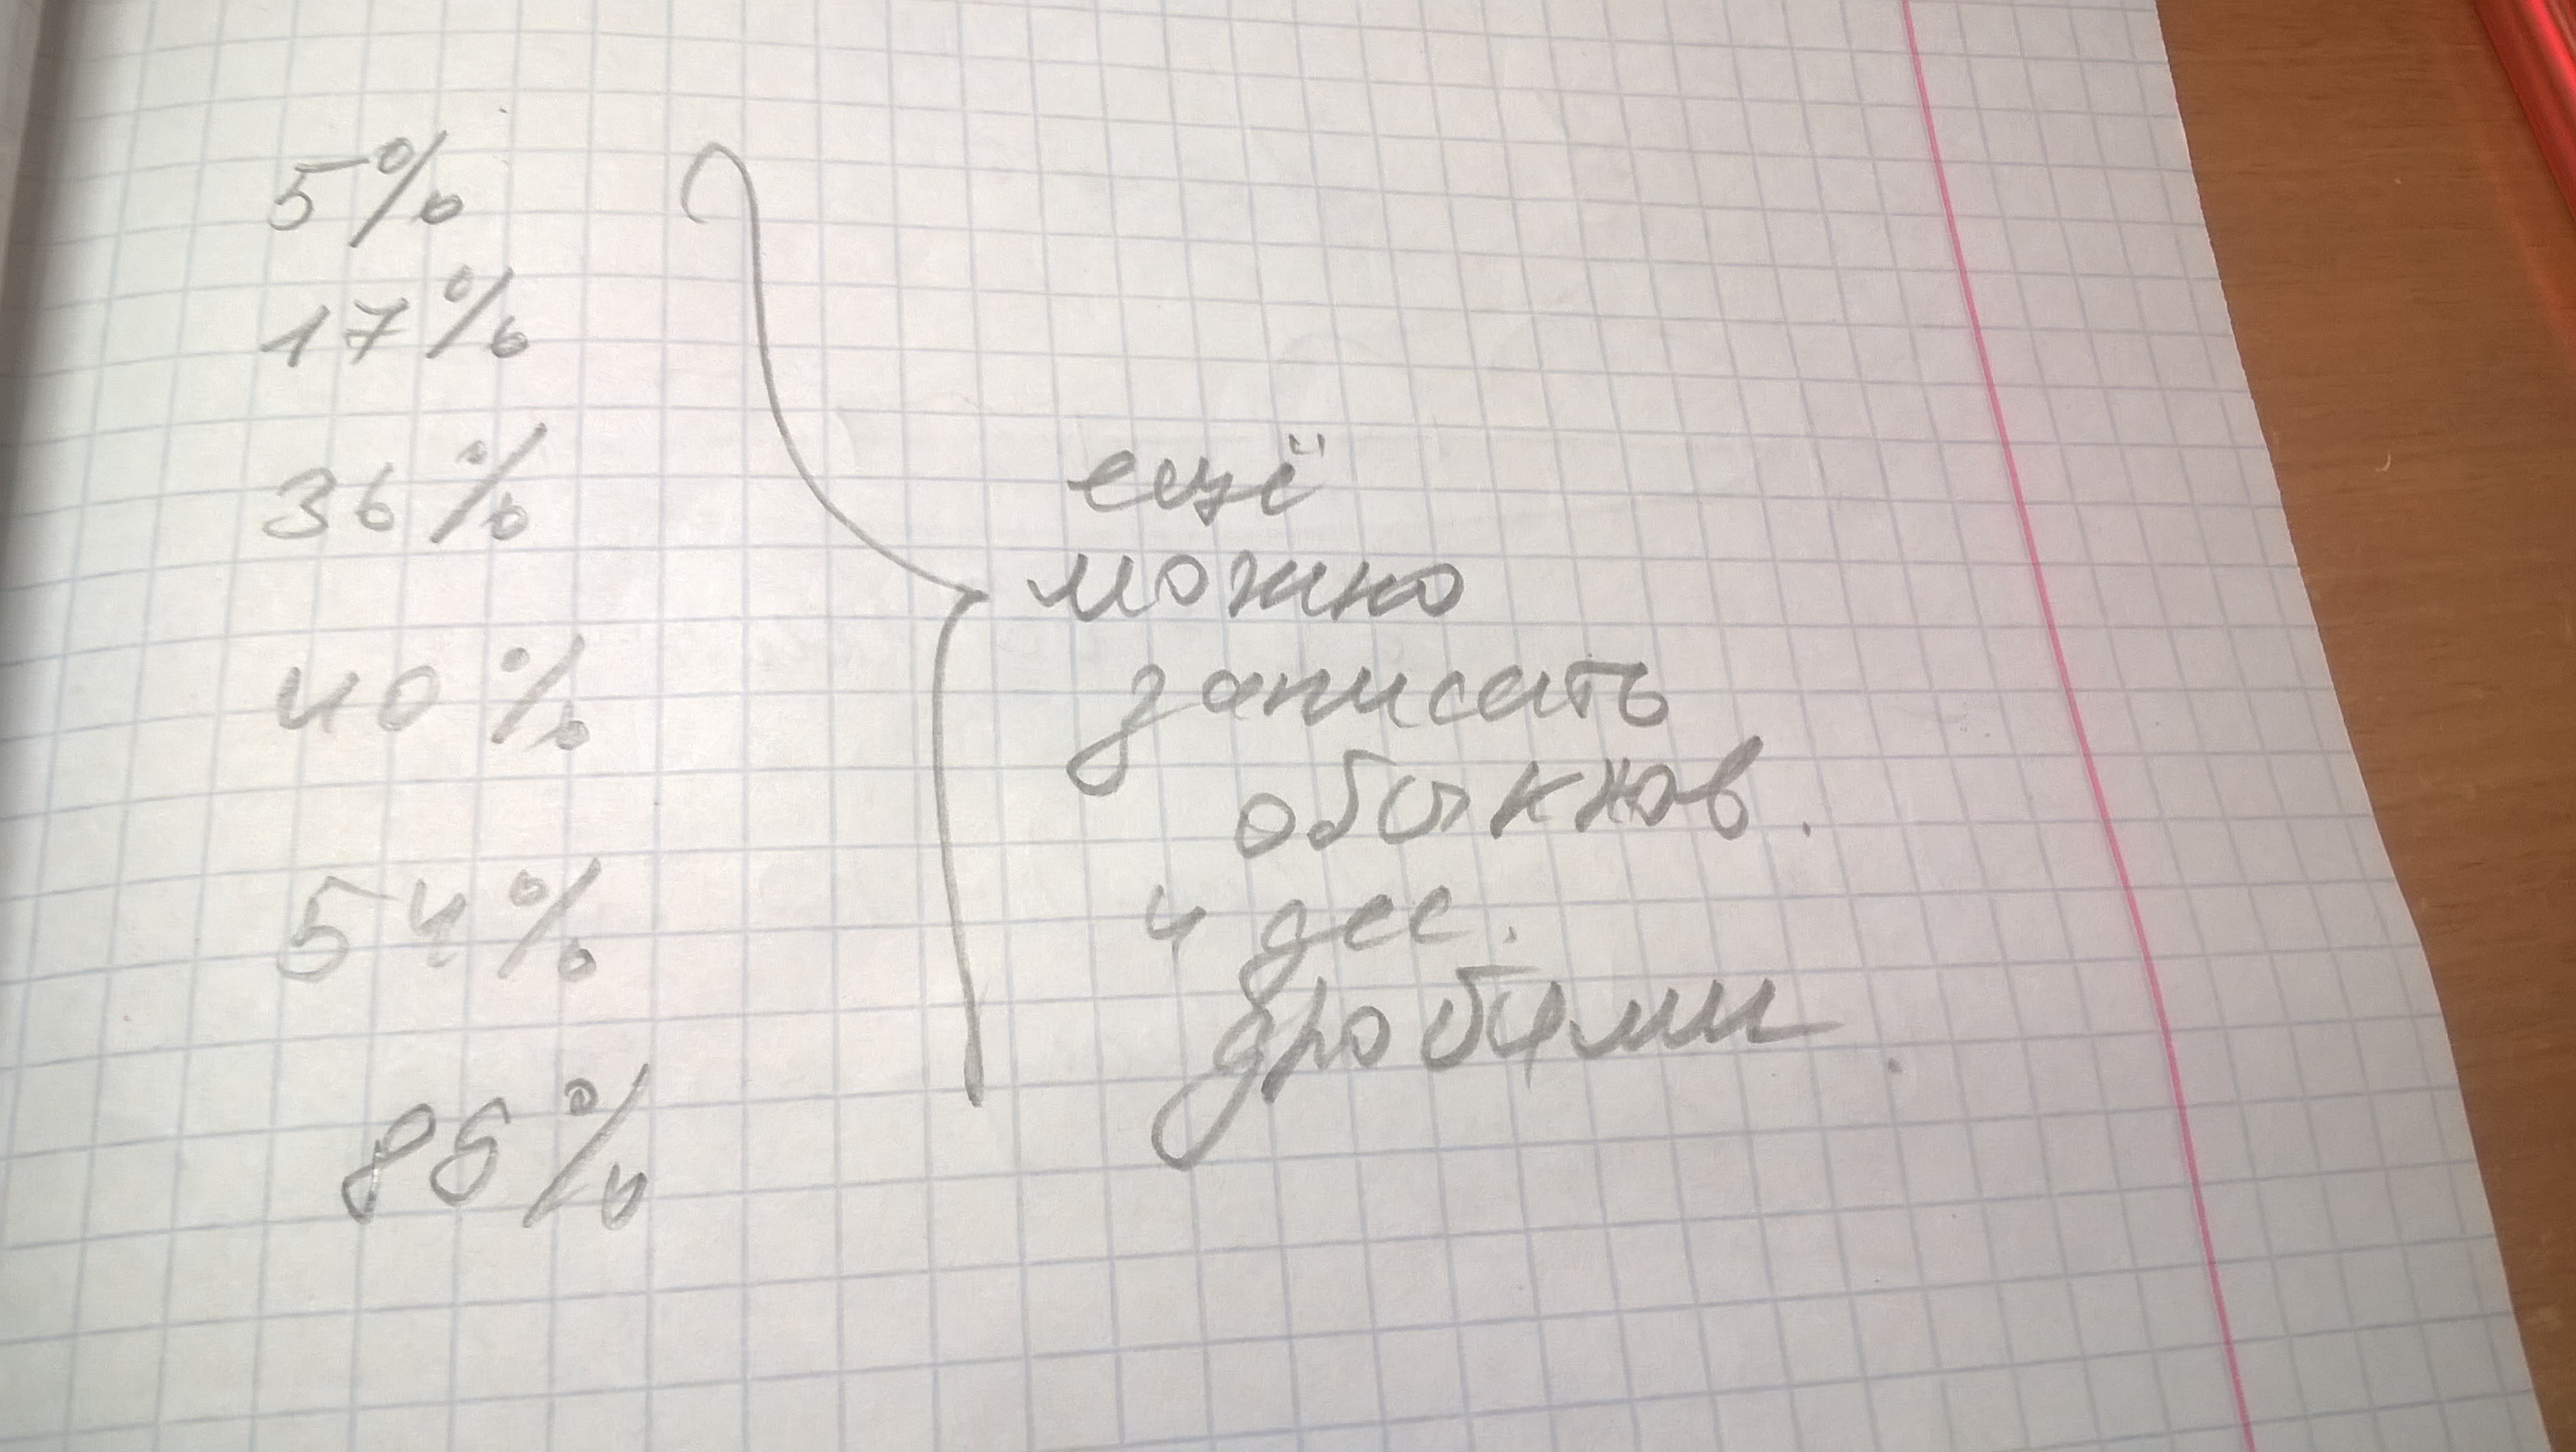 5%
17%
36%
40%
54%
86%
ещё
можно
записать
обыкнов.
и дес.
дробями.